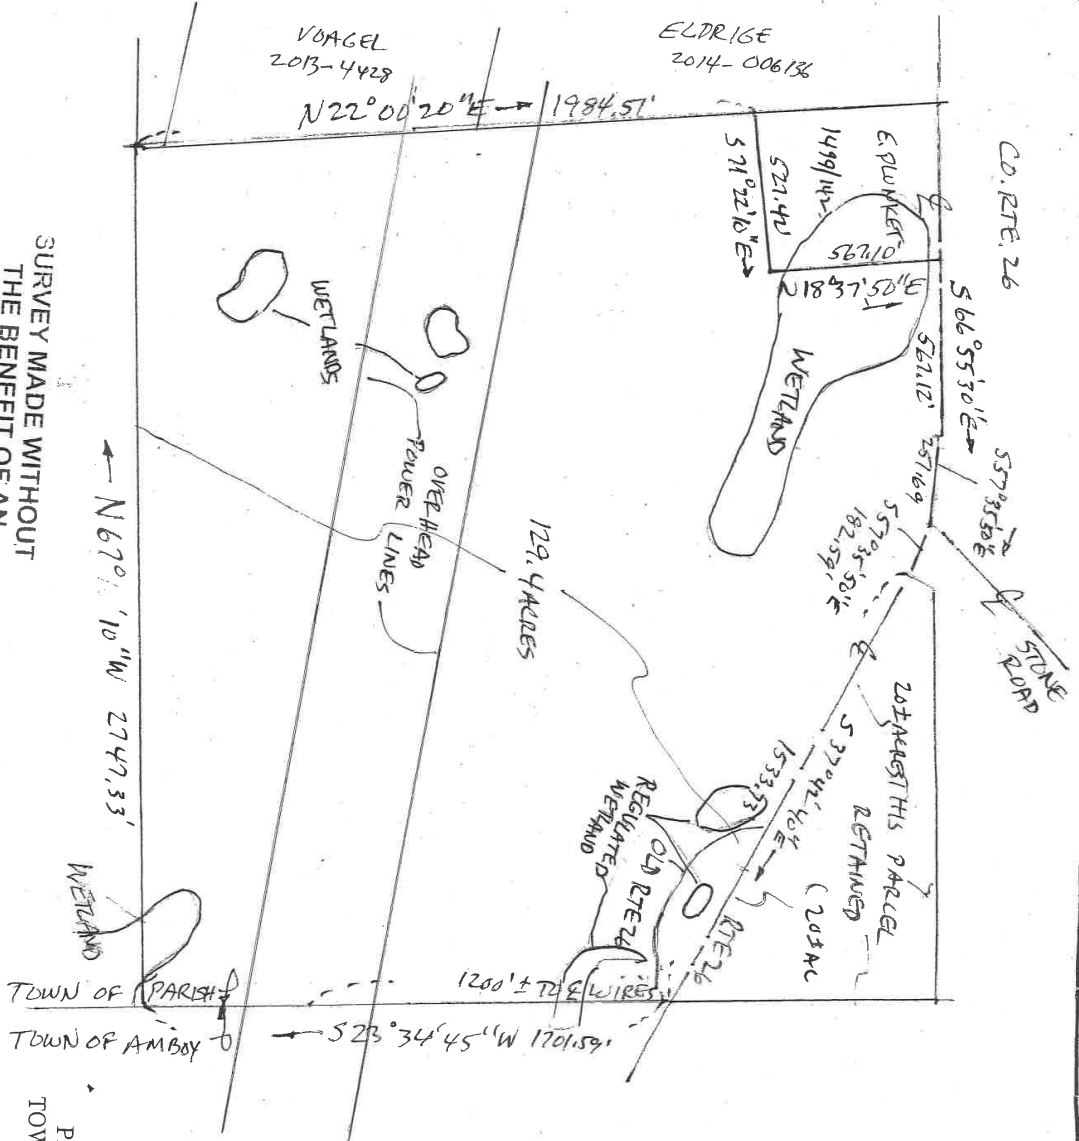 VOAGEL
2013-4428
ELDRIGE
2014-006136
N22°00'20"E → 1984.51'
CO. RTE. 26
E. PLUNKET
1499/142
527.42'
S71°22'10"E →
567.10'
N18°37'50"E
℄
S66°55'30"E →
567.12'
257.69
S57°35'50"E
S57°35'50"E
182.59'
℄
STONE
ROAD
WETLAND
WETLANDS
OVERHEAD
POWER LINES
129.4 ACRES
℄
20± ACRES THIS PARCEL
RETAINED
(20± AC
S37°42'40"E →
1533.73
RTE 26
REGULATED
WETLAND
OLD RTE 26
← N67° '10"W 2747.33'
WETLAND
TOWN OF PARISH
1200'± TO ℄ WIRES
TOWN OF AMBOY
← S23°34'45"W 1701.59'
SURVEY MADE WITHOUT
THE BENEFIT OF AN
P
TOW